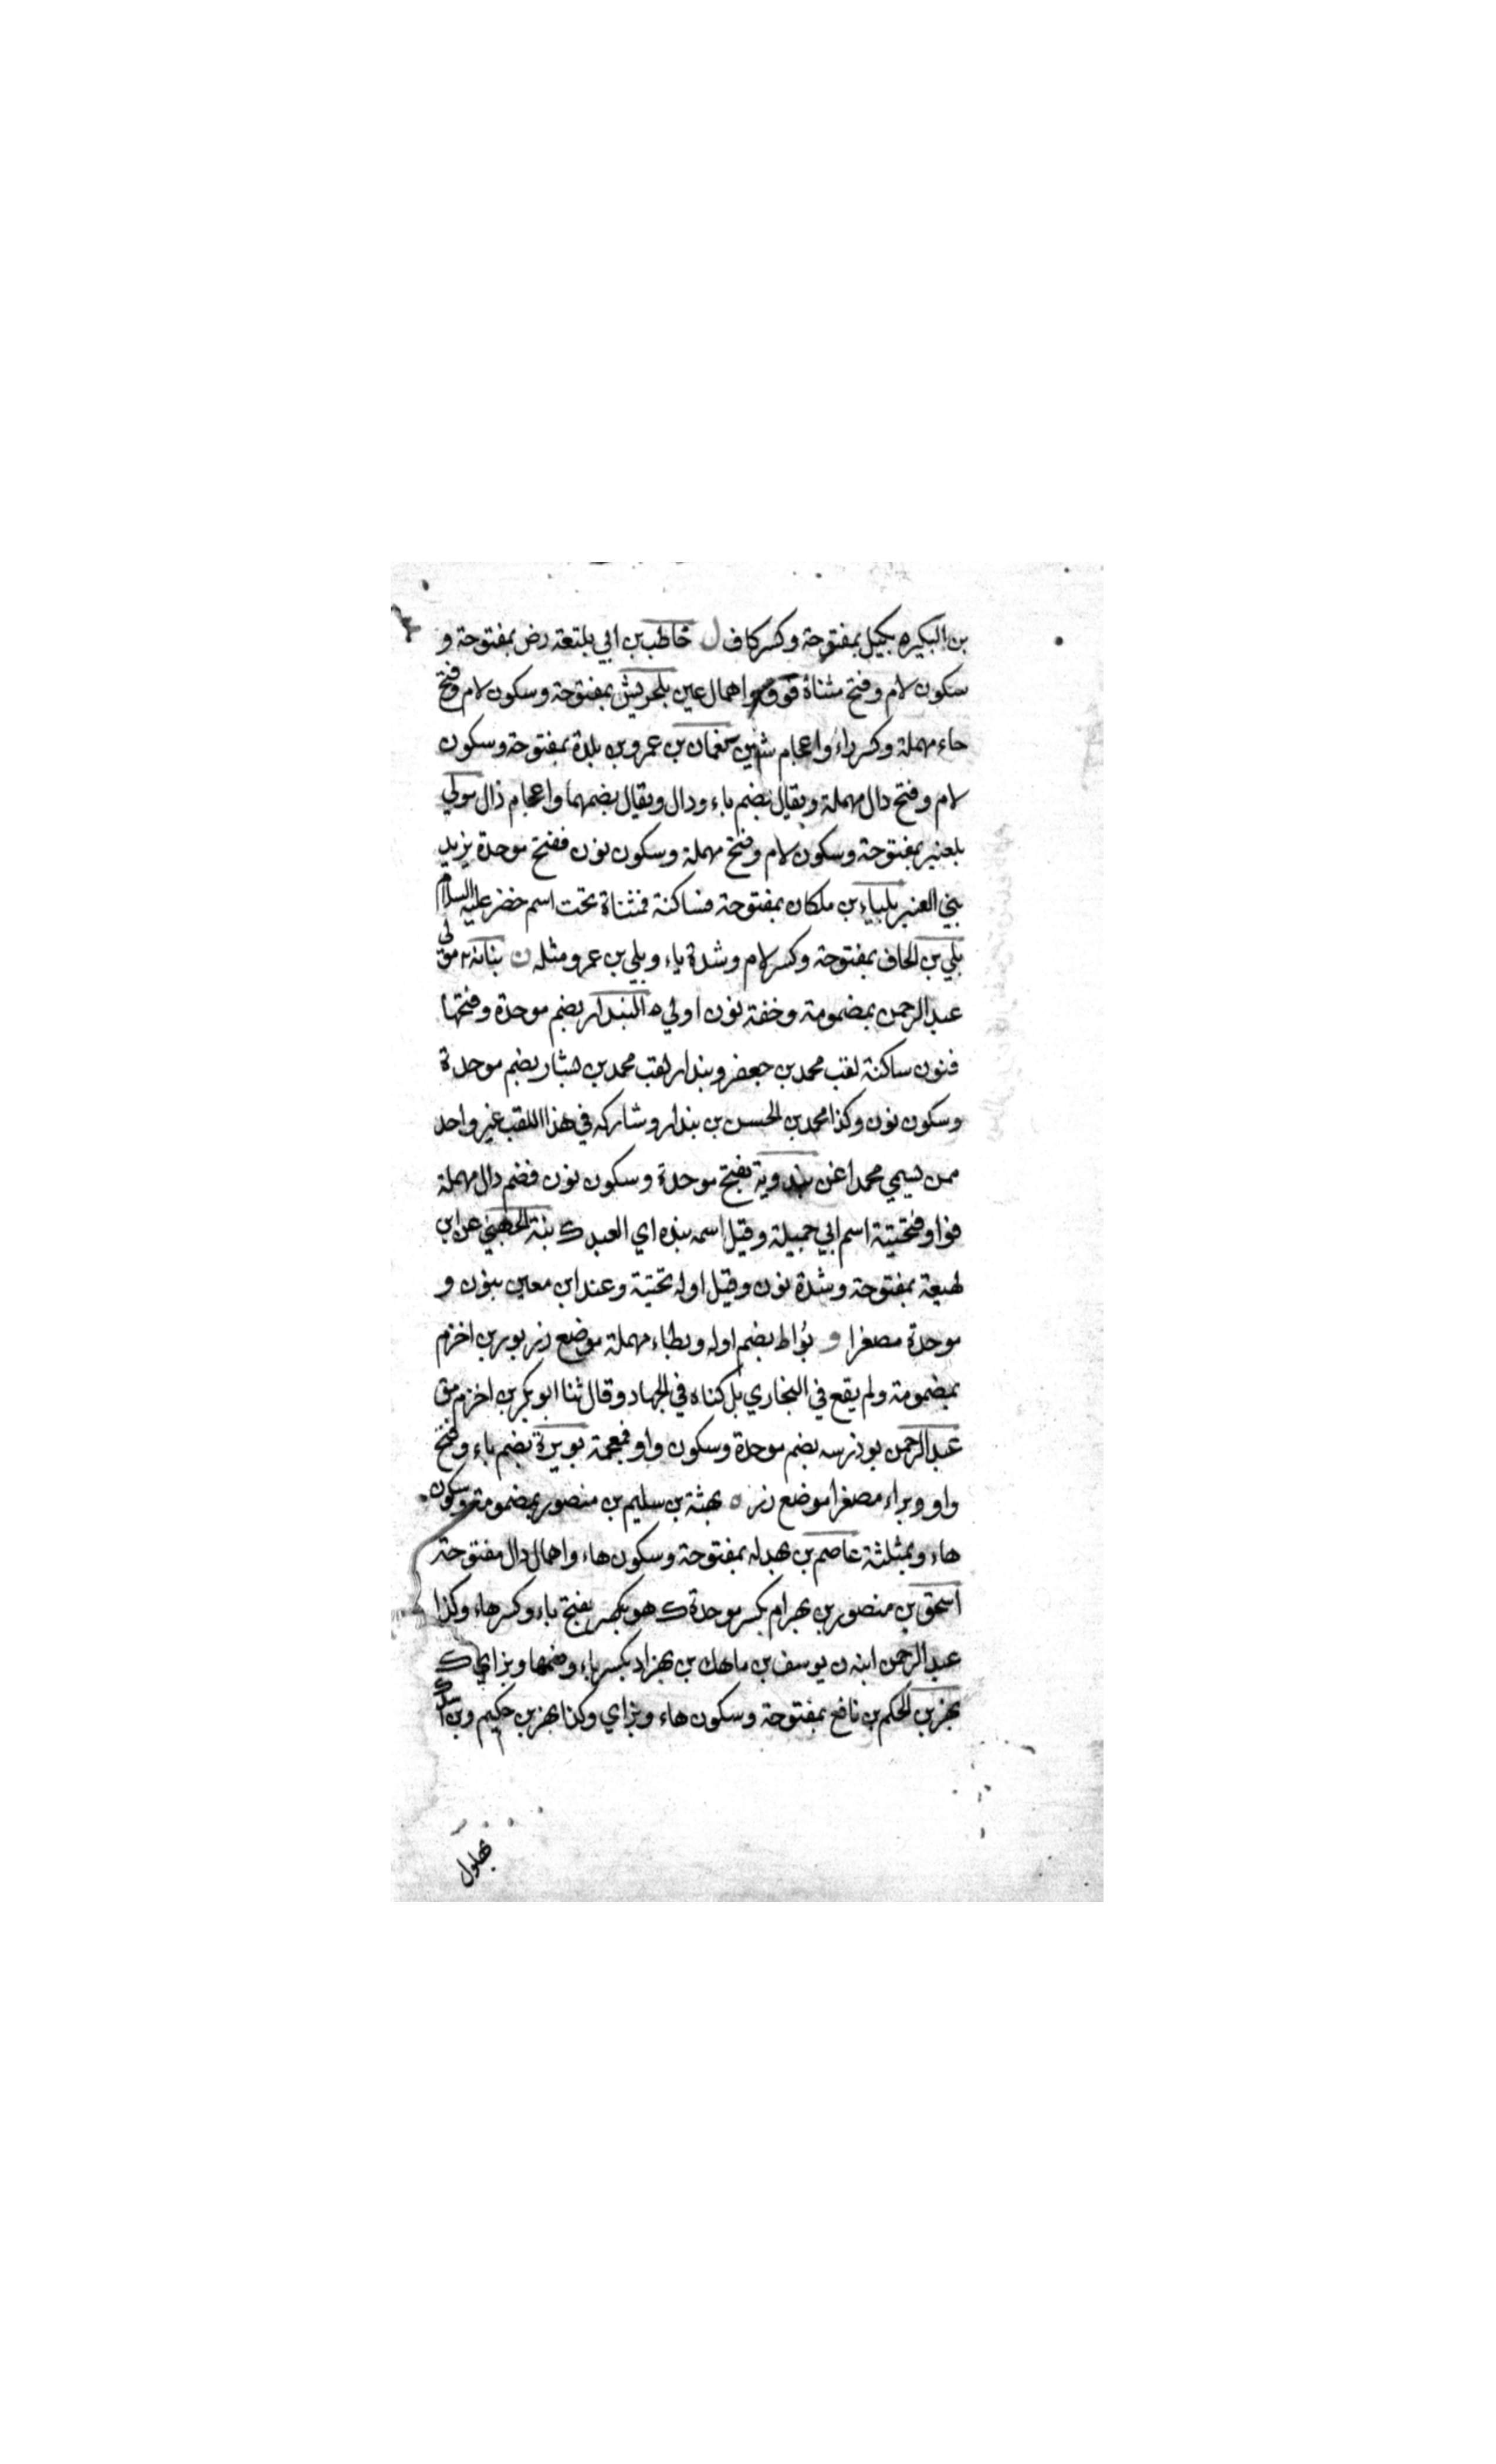 بن البكيره بكيل بمفتوحة وكسر كاف ل خاطب بن ابي بلتعة رض بمفتوحة و
سكون لام وفتح مثناة فوق واهمال عين بلحريش بمفتوحة وسكون لام وفتح
حاء مهملة وكسر راء واعجام شين نعمان بن عمرو بن بلدة بمفتوحة وسكون
لام وفتح دال مهملة ويقال بضم باء ودال ويقال بضمهما واعجام ذال مولي
بلعنبر بمفتوحة وسكون لام وفتح مهملة وسكون نون ففتح موحدة يزيد
بني العنبر بلياء بن ملكان بمفتوحة فساكنة فمثناة تحت اسم خضر عليه السلام
بلي بن الحاف بمفتوحة وكسر لام وشدة ياء وبلي بن عمرو مثله ن بنانة مولي
عبد الرحمن بمضمومة وخفة نون اولي ه البندار بضم موحدة وفتحها
فنون ساكنة لقب محمد بن جعفر وبندار لقب محمد بن بشار بضم موحدة
وسكون نون وكذا محمد بن الحسن بن بندار وشاركه في هذا اللقب غير واحد
ممن يسمي محمدا غن بندوية بفتح موحدة وسكون نون فضم دال مهملة
فواو فتحتية اسم ابي جميلة وقيل اسمه بنده اي العبد ك بنة الجهني عن ابن
لهيعة بمفتوحة وشدة نون وقيل اوله تحتية وعند ابن معين بنون و
موحدة مصغرا و بُواط بضم اوله وبطاء مهملة موضع زر بور بن اخزم
بمضمومة ولم يقع في البخاري بل كناه في الجهاد وقال ثنا ابو بكر بن اخزم مق
عبد الرحمن بوذرسه بضم موحدة وسكون واو فمعجمة بويرة بضم باء وفتح
واو وبراء مصغرا موضع زر ه بهثة بن سليم بن منصور بمضمومة وسكون
هاء وبمثلثة عاصم بن بهدله بمفتوحة وسكون هاء واهمال دال مفتوحة
اسحق بن منصور بن بهرام بكسر موحدة ك هو بكهر بفتح باء وكسر هاء وكذا
عبد الرحمن ابنه ن يوسف بن ماهك بن بهزاد بكسر باء وضمها وبزاي ك
بهز بن الحكم بن نافع بمفتوحة وسكون هاء وبزاي وكذا بهز بن حكيم وبن اسد
بهلول